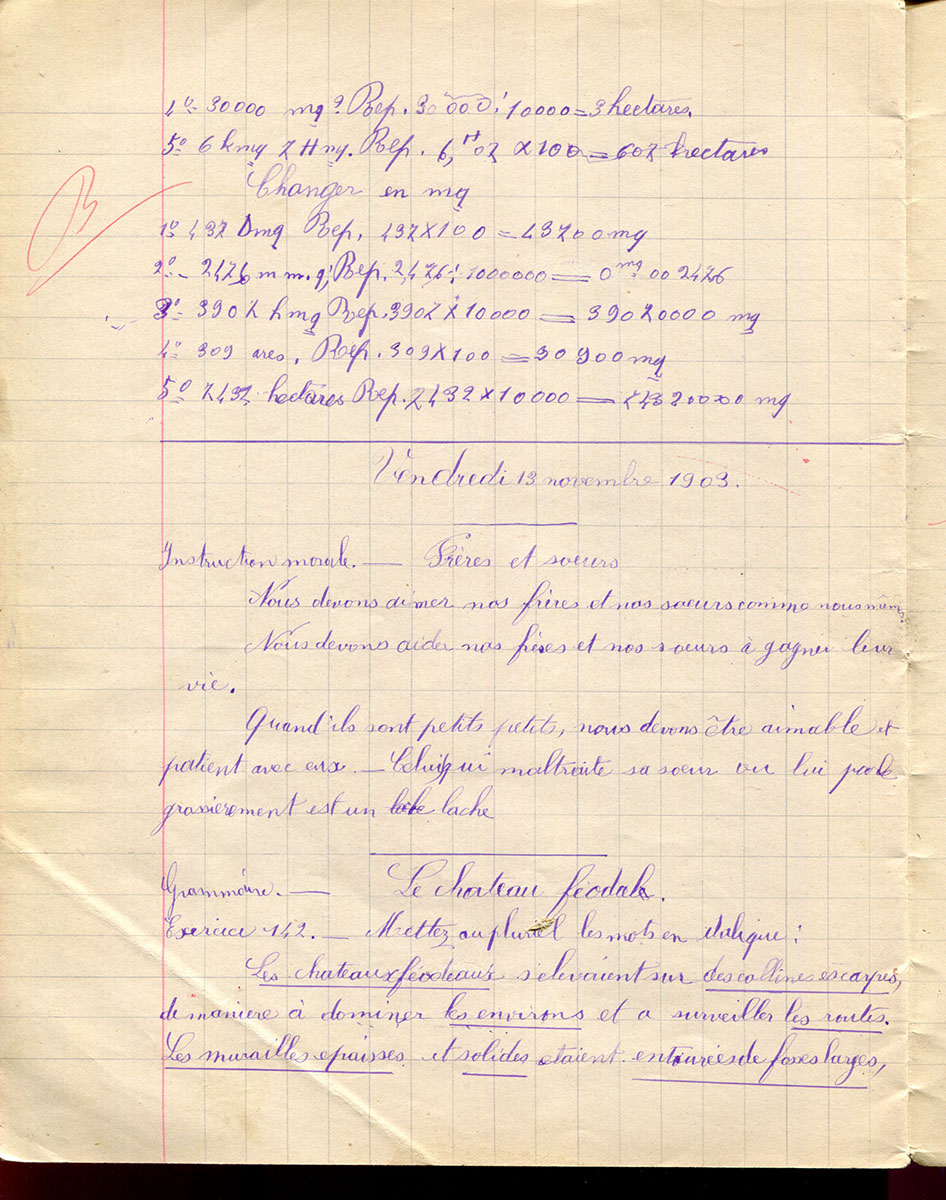 4º 30000 mq. Rep. 30000 : 10000 = 3 hectares.
5º 6 kmq 2 Hmq. Rep. 6,02 × 100 = 602 hectares
Changer en mq
1º 432 Dmq Rep. 432 × 100 = 43200 mq
2º - 2426 m m. q. Rep. 2426 : 1000000 = 0 mq 002426
3º - 3902 hmq Rep. 3902 × 10000 = 39020000 mq
4º 309 ares, Rep. 309 × 100 = 30900 mq
5º 2432 hectares Rep. 2432 × 10000 = 24320000 mq
Vendredi 13 novembre 1903.
Instruction morale. — Frères et soeurs
Nous devons aimer nos frères et nos soeurs comme nous mêm
Nous devons aider nos frères et nos soeurs à gagner leur
vie.
Quand ils sont petits petits, nous devons être aimable et
patient avec eux. — Celui qui maltraite sa soeur ou lui parle
grossièrement est un lache
Grammaire. — Le chateau féodal.
Exercice 142. — Mettez au pluriel les mots en italique :
Les chateaux féodeaux s'elevaient sur des collines escarpés,
de maniere à dominer les environs et a surveiller les routes.
Les murailles epaisses et solides etaient entourées de foses larges,